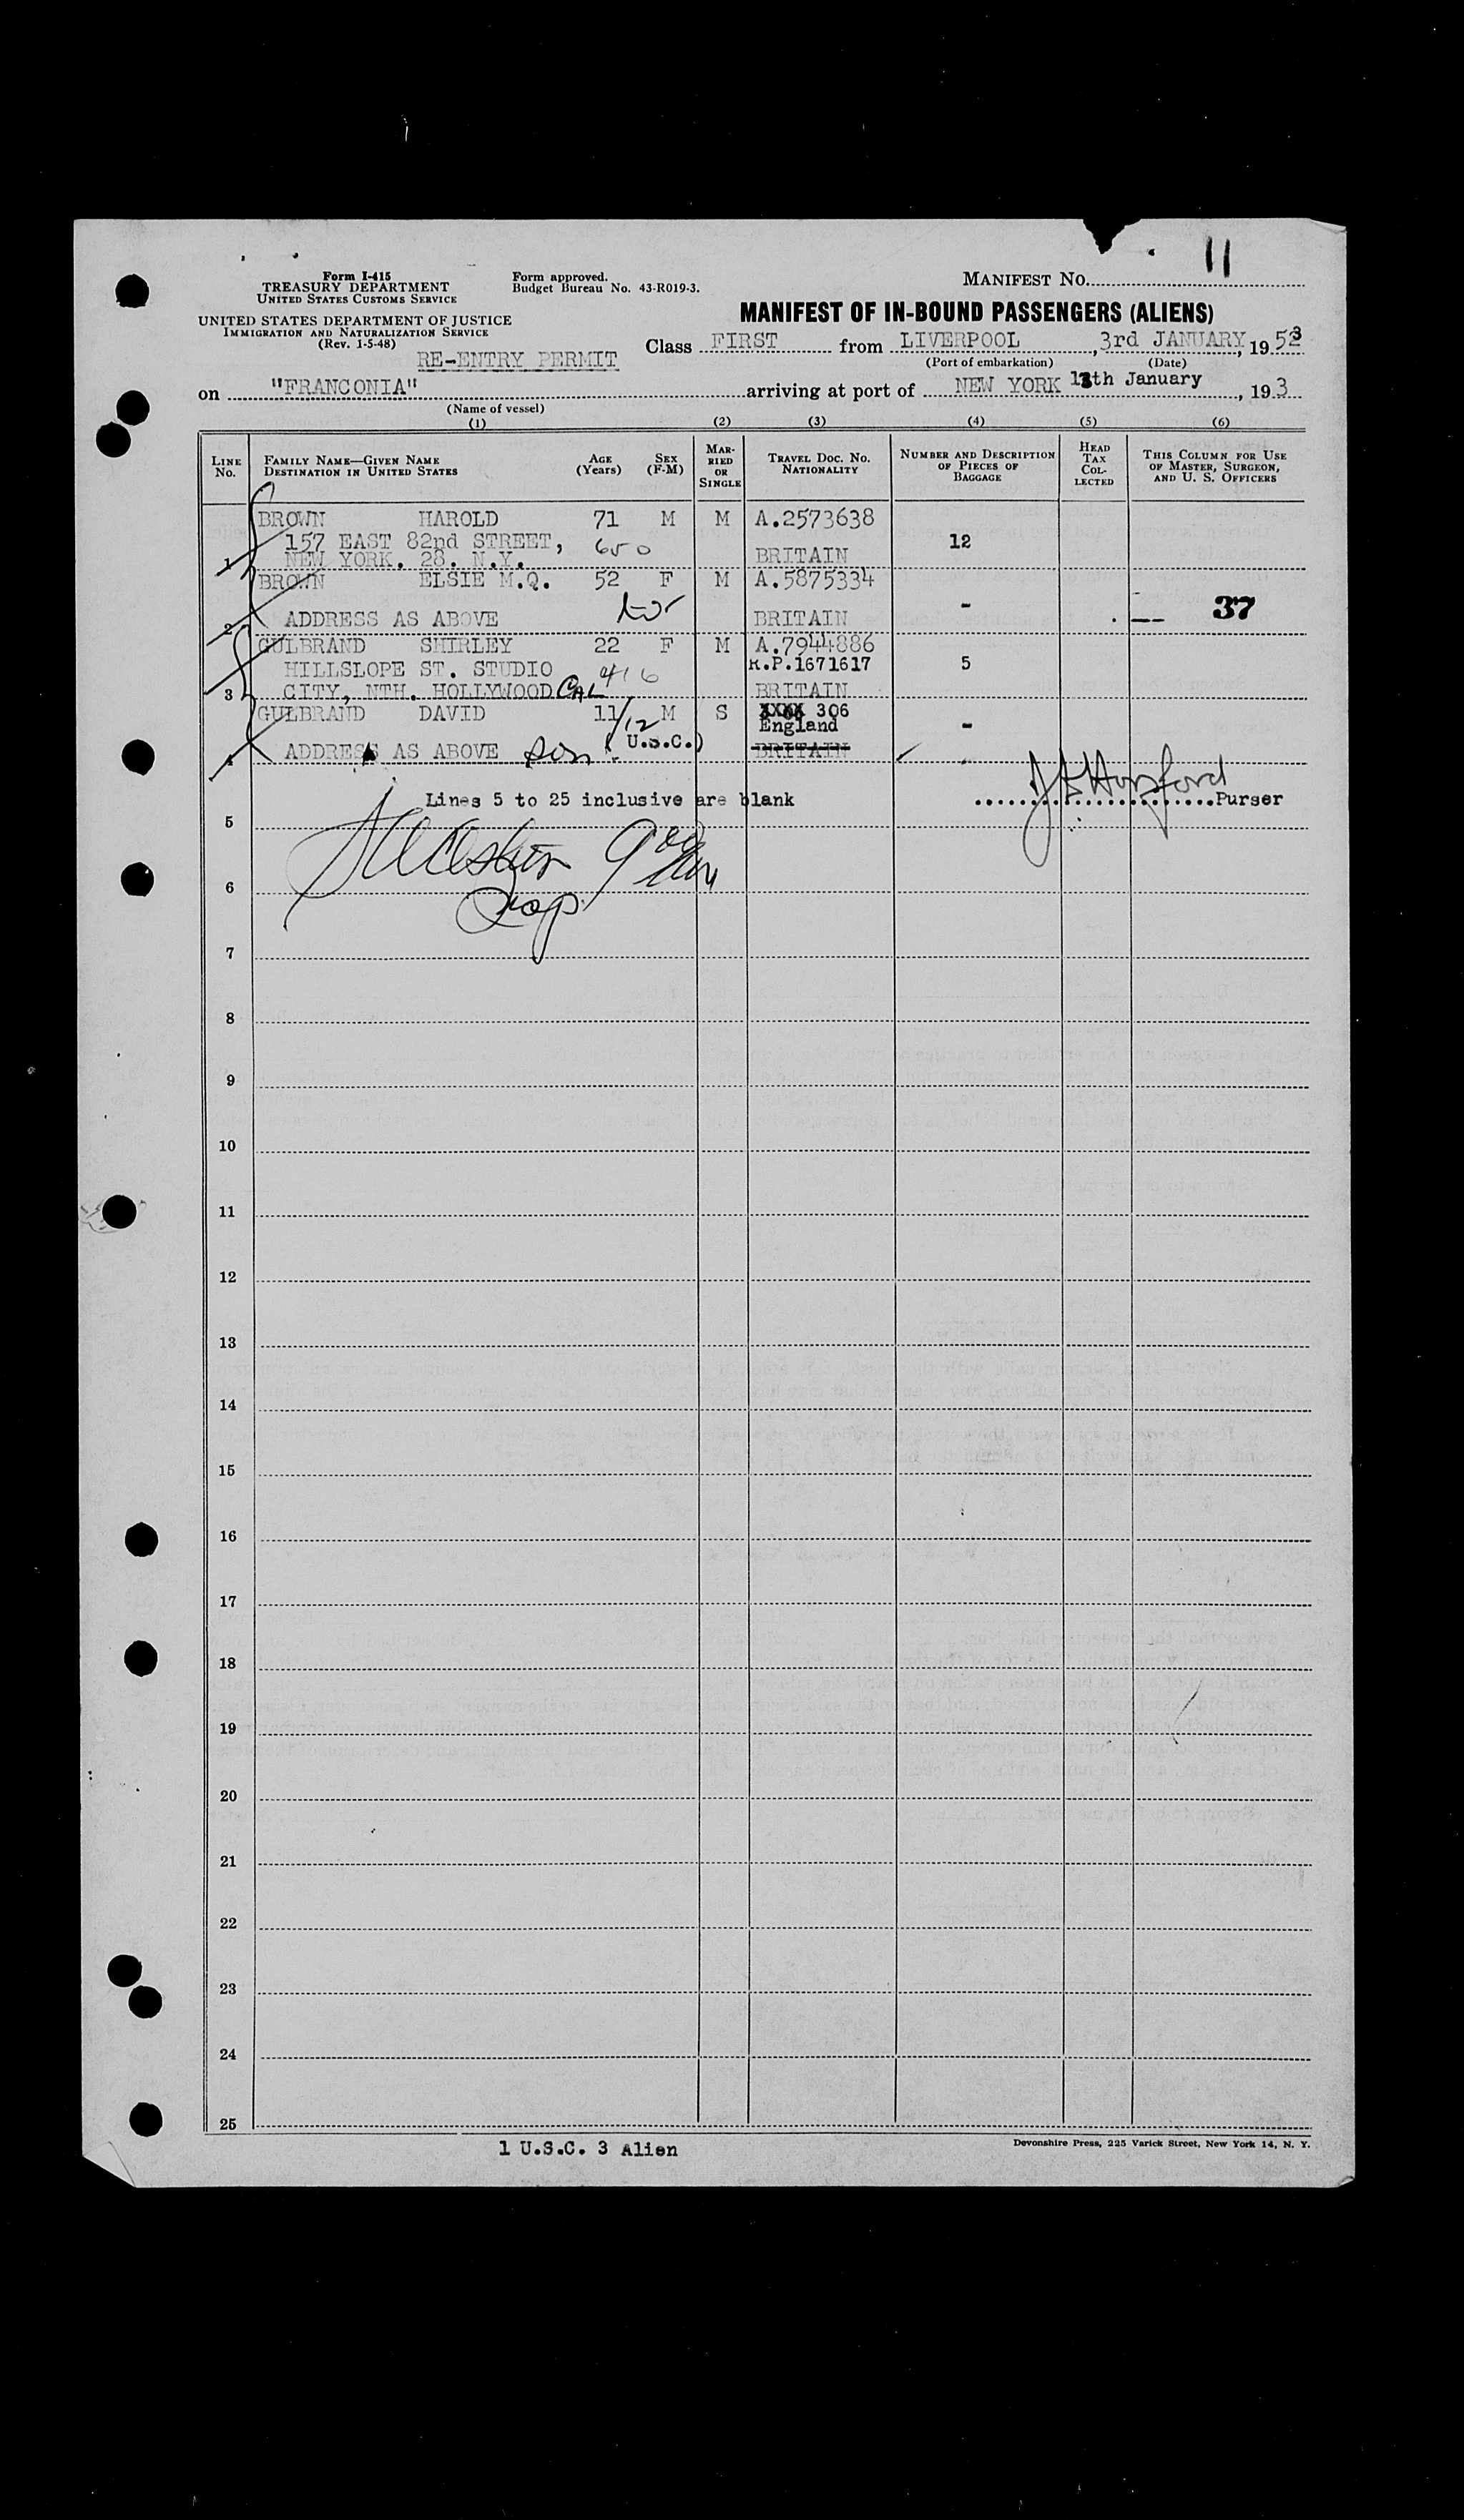 11
Form I-415
TREASURY DEPARTMENT
UNITED STATES CUSTOMS SERVICE
Form approved.
Budget Bureau No. 43-R019-3.
MANIFEST No.
UNITED STATES DEPARTMENT OF JUSTICE
IMMIGRATION AND NATURALIZATION SERVICE
(Rev. 1-5-48)
MANIFEST OF IN-BOUND PASSENGERS (ALIENS)
RE-ENTRY PERMIT
Class FIRST from LIVERPOOL, 3rd JANUARY, 1953
(Port of embarkation) (Date)
on "FRANCONIA" arriving at port of NEW YORK 13th January, 193
(Name of vessel)
(1) (2) (3) (4) (5) (6)
LINE No.
FAMILY NAME—GIVEN NAME
DESTINATION IN UNITED STATES
AGE (Years)
SEX (F-M)
MARRIED OR SINGLE
TRAVEL DOC. NO.
NATIONALITY
NUMBER AND DESCRIPTION OF PIECES OF BAGGAGE
HEAD TAX COLLECTED
THIS COLUMN FOR USE OF MASTER, SURGEON, AND U. S. OFFICERS
BROWN HAROLD 71 M M A.2573638
157 EAST 82nd STREET, 650 12
1 NEW YORK. 28. N.Y. BRITAIN
BROWN ELSIE M.Q. 52 F M A.5875334
2 ADDRESS AS ABOVE BRITAIN - 37
GULBRAND SHIRLEY 22 F M A.7944886
HILLSLOPE ST. STUDIO 416 R.P.1671617 5
3 CITY, NTH. HOLLYWOOD CAL BRITAIN
GULBRAND DAVID 11/12 M S 306
England -
4 ADDRESS AS ABOVE Son (U.S.C.) BRITAIN
Lines 5 to 25 inclusive are blank Purser
5
6
7
8
9
10
11
12
13
14
15
16
17
18
19
20
21
22
23
24
25
1 U.S.C. 3 Alien
Devonshire Press, 225 Varick Street, New York 14, N. Y.